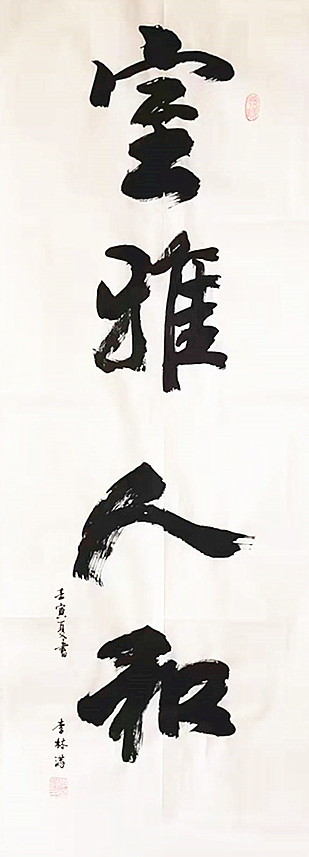 室雅人和
壬寅夏书
李林鸿